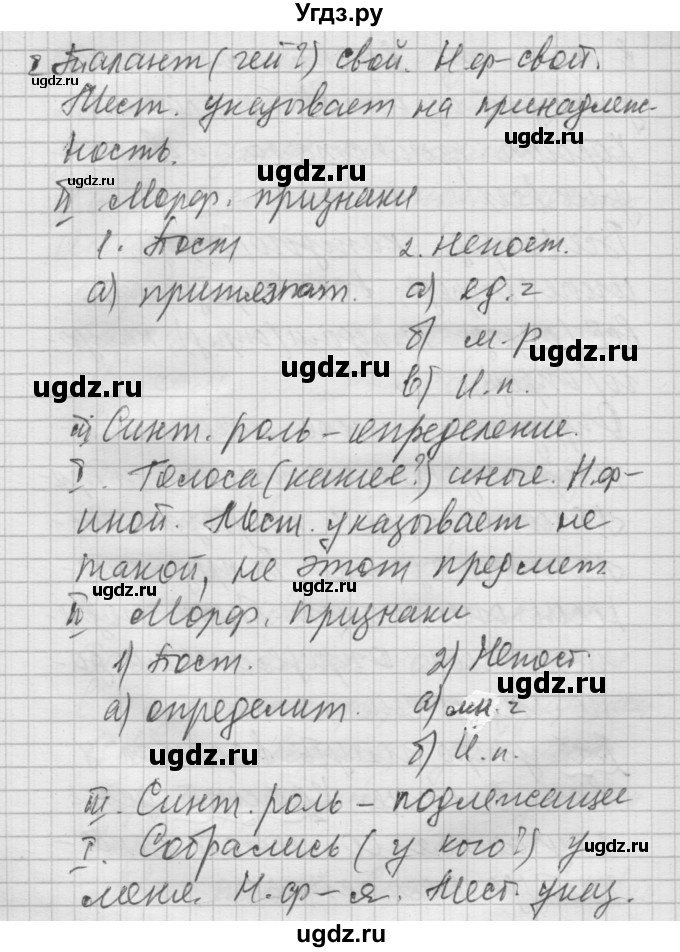 Угдз.ру
I Талант (чей?) свой. Н.ф-свой.
Мест. указывает на принадлеж-
ность.
ugdz.ru ugdz.ru
II Морф. признаки ugdz.ru
1. Пост 2. Непост.
а) притяжат. а) ед. ч
б) м.р ugdz.ru
ugdz.ru ugdz.ru в) И.п.
III Синт. роль – определение.
ugdz.ru
I. Голоса (какие?) иные. Н.ф-
ugdz.ru
иной. Мест. указывает не
такой, не этот предмет.
ugdz.ru ugdz.ru
II Морф. признаки
1) Пост. 2) Непост.
ugdz.ru
а) определит. а) мн. ч
ugdz.ru б) И.п.
III. Синт. роль – подлежащее
I. Собрались (у кого?) у
ugdz.ru
меня. Н.ф-я. Мест. указ.
ugdz.ru